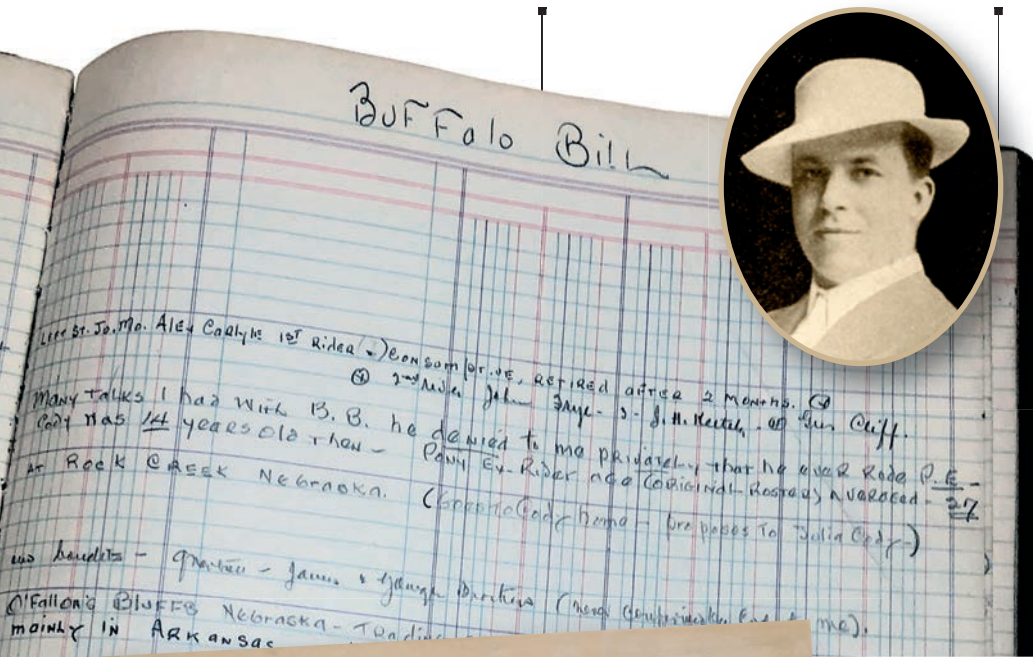 BUFFalo Bill
LEFT ST. Jo. Mo. Alex Carlyle 1ST Rider consomptive, retired after 2 months.
2nd rider John Frye - 3 - J. H. Keetch - Gus Cliff.
Many Talks I had with B. B. he denied to me privately that he ever Rode P. E. -
Cody was 14 years old then - Pony Ex. Rider age (original Roster) averaged - 27
AT Rock CREEK Nebraska. ( Cody home - proposes to Julia Cody -)
bandits - - James & Younger Brothers ( me).
O'Fallon's BLUFFS Nebraska -
mainly in Arkansas